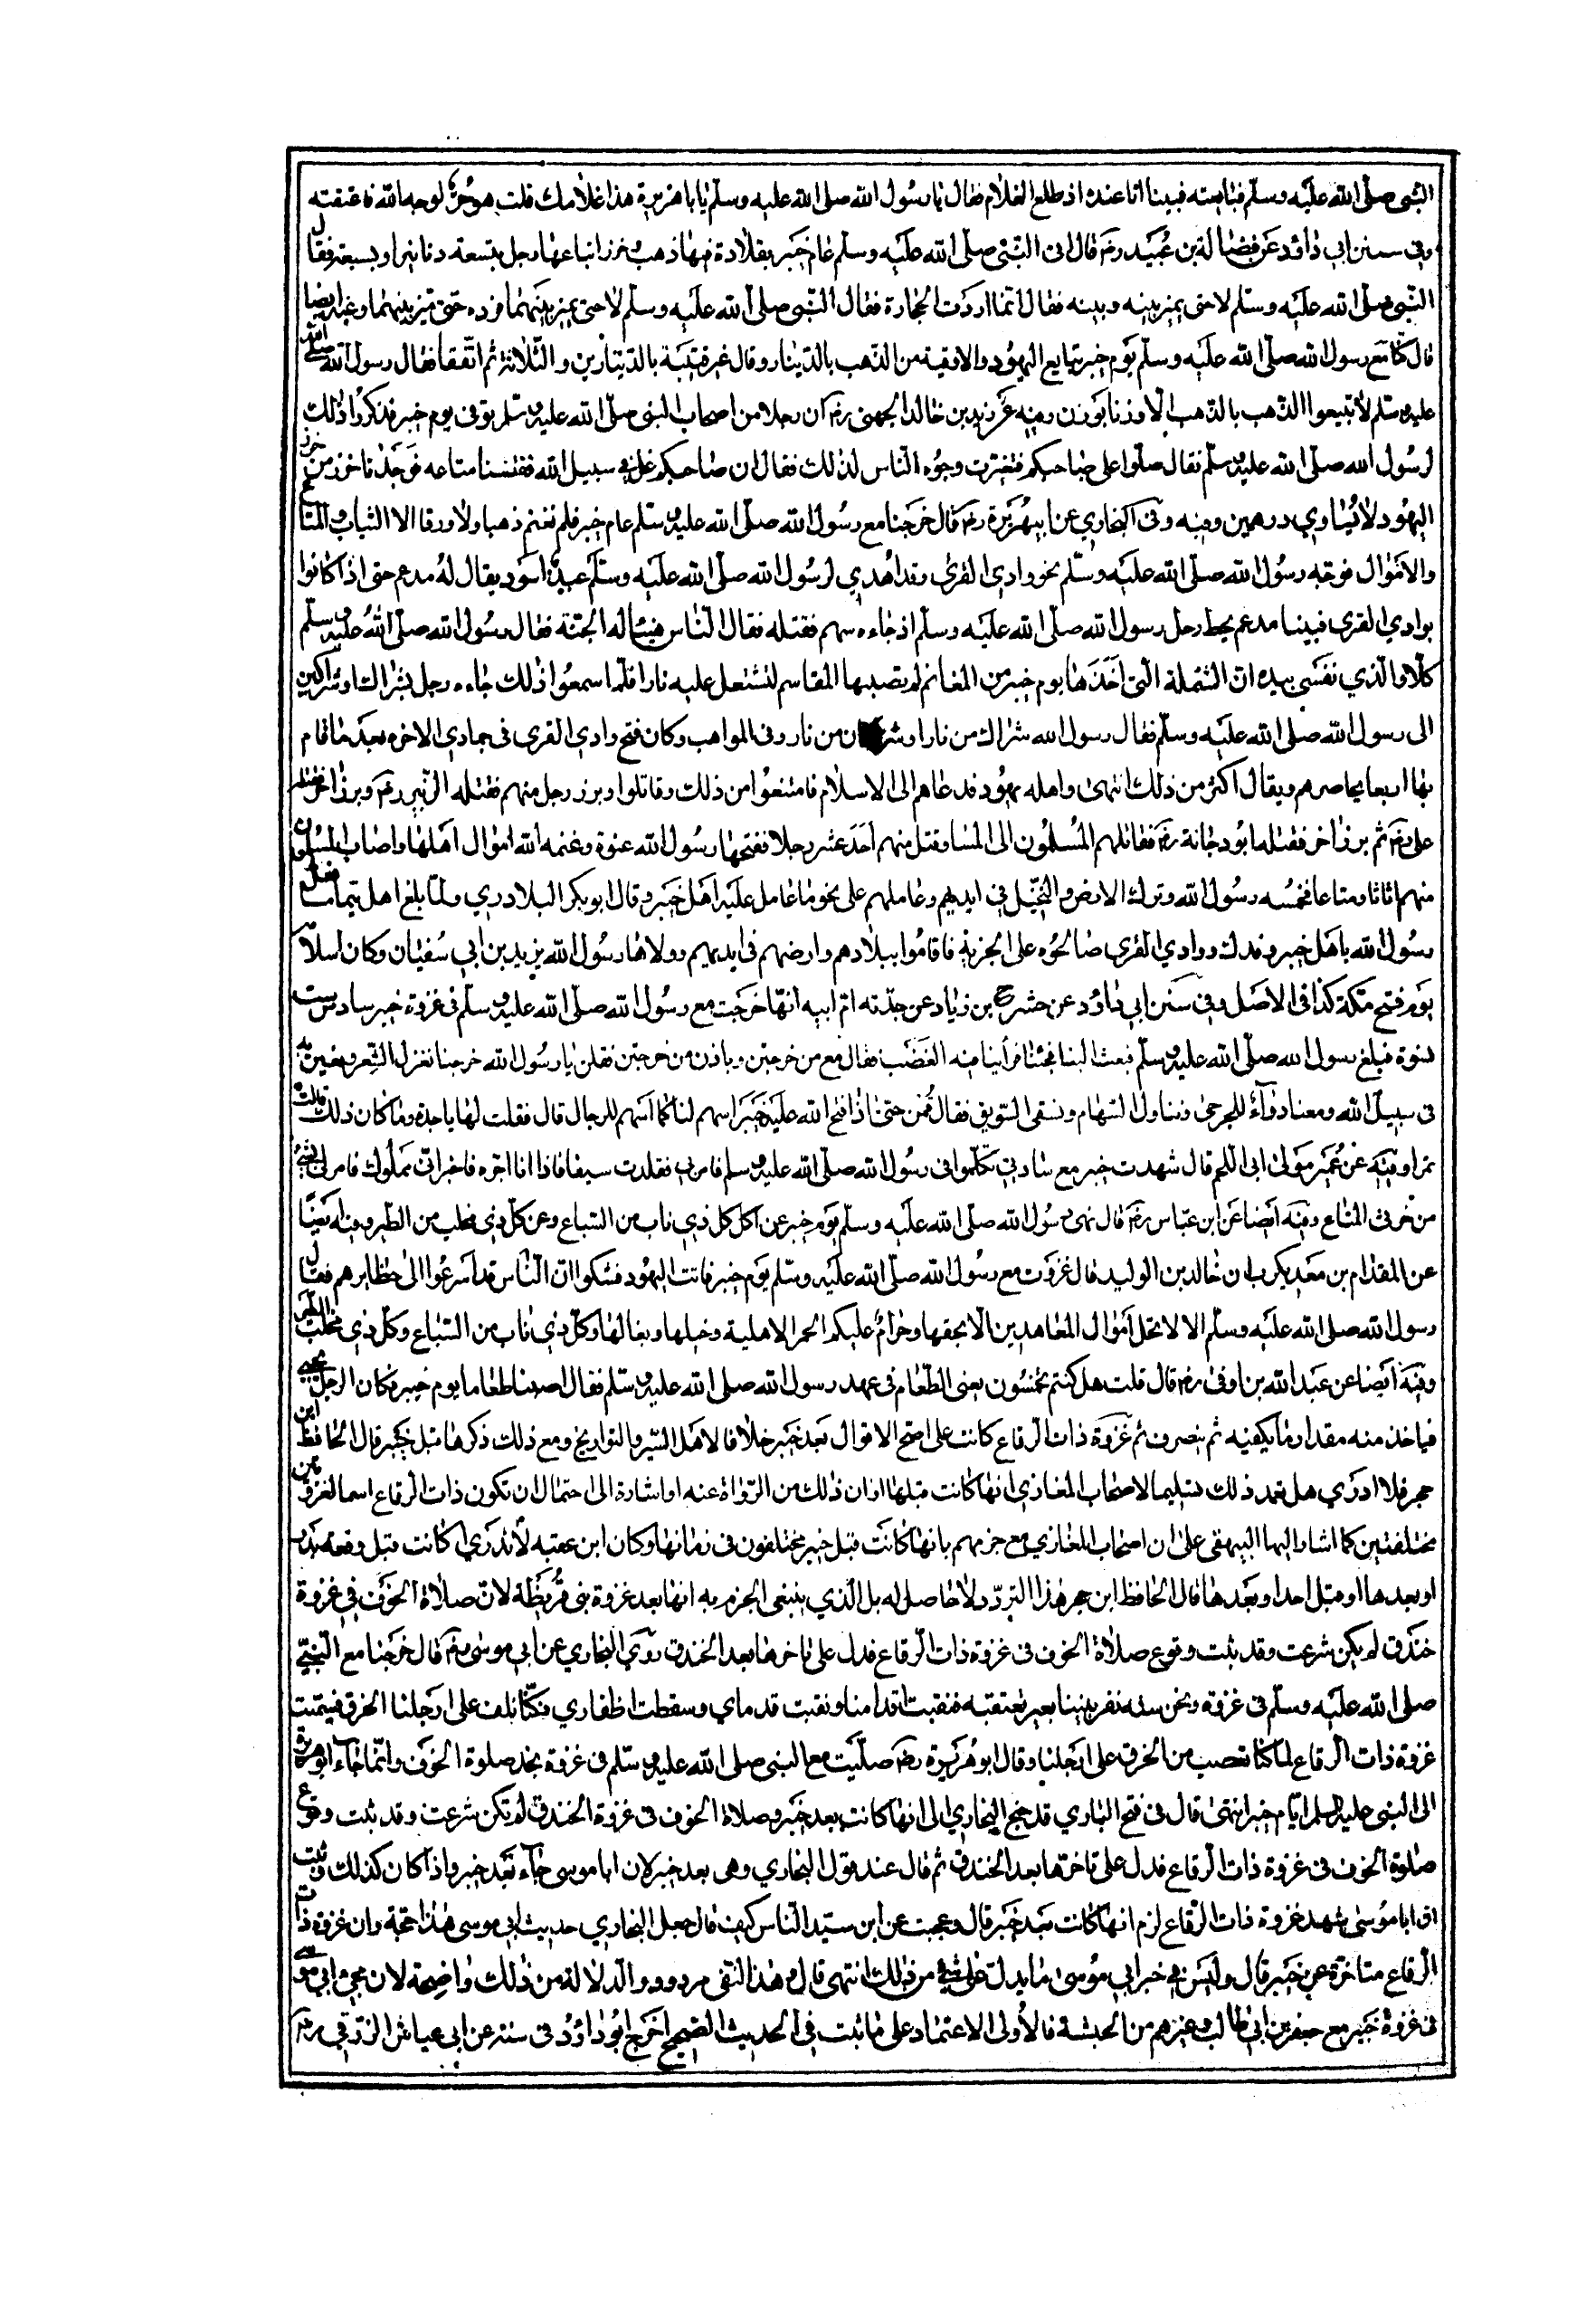 النبى صلى الله عليه وسلم فبايعته فبينا انا عنده اذ طلع الغلام فقال يا رسول الله صلى الله عليه وسلم يا ابا هريرة هذا غلامك قلت هو حر لوجه الله فاعتقته
وفى سنن ابي داؤد عن فضالة بن عبيد رضه قال اتى النبى صلى الله عليه وسلم عام خيبر بقلادة فيها ذهب وخرز ابتاعها رجل بتسعة دنانير او بسبعة فقال
النبى صلى الله عليه وسلم لا حتى يميز بينه وبينه فقال انما اردت الحجارة فقال النبى صلى الله عليه وسلم لا حتى يميز بينهما فرده حتى ميز بينهما وفيه ايضا
قال كنا مع رسول الله صلى الله عليه وسلم يوم خيبر نبايع اليهود الاوقية من الذهب بالدينار وقال غير قتيبة بالدينارين والثلاثة ثم اتفقا فقال رسول الله صلى الله
عليه وسلم لا تبيعوا الذهب بالذهب الا وزنا بوزن وفيه عن زيد بن خالد الجهنى رضه ان رجلا من اصحاب النبى صلى الله عليه وسلم توفى يوم خيبر فذكروا ذلك
لرسول الله صلى الله عليه وسلم فقال صلوا على صاحبكم فتغيرت وجوه الناس لذلك فقال ان صاحبكم غل في سبيل الله ففتشنا متاعه فوجدنا خرزا من خرز
اليهود لا يساوي درهمين وفيه وفى البخاري عن ابيهريرة رضه قال خرجنا مع رسول الله صلى الله عليه وسلم عام خيبر فلم نغنم ذهبا ولا ورقا الا الثياب والمتاع
والاموال فوجه رسول الله صلى الله عليه وسلم نحو وادي القرى وقد اهدي لرسول الله صلى الله عليه وسلم عبد اسود يقال له مدعم حتى اذا كانوا
بوادي القرى فبينا مدعم يحط رحل رسول الله صلى الله عليه وسلم اذ جاءه سهم فقتله فقال الناس هنيئا له الجنة فقال رسول الله صلى الله عليه وسلم
كلا والذي نفسي بيده ان الشملة التى اخذها يوم خيبر من المغانم لم تصبها المقاسم لتشتعل عليه نارا فلما سمعوا ذلك جاءه رجل بشراك او شراكين
الى رسول الله صلى الله عليه وسلم فقال رسول الله شراك من نار او شراكان من نار وفى المواهب وكان فتح وادي القرى فى جمادي الاخره بعد ما اقام
بها اربعا يحاصرهم ويقال اكثر من ذلك انتهى واهله يهود فدعاهم الى الاسلام فامتنعوا من ذلك وقاتلوا وبرز رجل منهم فقتله الزبير رضه وبرز اخر فقتله
على رضه ثم برز اخر فقتله ابو دجانة رضه فقاتلهم المسلمون الى المسا وقتل منهم احد عشر رجلا ففتحها رسول الله عنوة وغنمه الله اموال اهلها واصاب المسلمون
منهم اثاثا ومتاعا فخمسه رسول الله وترك الارض والنخيل في ايديهم وعاملهم على نحو ما عامل عليه اهل خيبر وقال ابو بكر البلادري ولما بلغ اهل تيما ما فعل
رسول الله باهل خيبر وفدك ووادي القرى صالحوه على الجزية فاقاموا ببلادهم وارضهم فى ايديهم وولاها رسول الله يزيد بن ابي سفيان وكان اسلامه
يوم فتح مكة كذا فى الاصل وفى سنن ابي داؤد عن حشرج بن زياد عن جدته ام ابيه انها خرجت مع رسول الله صلى الله عليه وسلم فى غزوة خيبر سادس ست
نسوة فبلغ رسول الله صلى الله عليه وسلم فبعث الينا فجئنا فرأينا فيه الغضب فقال مع من خرجتن وباذن من خرجتن فقلن يا رسول الله خرجنا نغزل الشعر ونعين به
فى سبيل الله ومعنا دواء للجرحى ونناول السهام ونسقى السويق فقال قمن حتى اذا فتح الله عليه خيبر اسهم لنا كما اسهم للرجال قال فقلت لها يا جدة وما كان ذلك قالت
تمرا وفيه عن عمير مولى ابى اللحم قال شهدت خيبر مع سادتي فكلموا فى رسول الله صلى الله عليه وسلم فامر بي فقلدت سيفا فاذا انا اجره فاخبر انى مملوك فامر لي بشئ
من خرثى المتاع وفيه ايضا عن ابن عباس رضه قال نهى رسول الله صلى الله عليه وسلم يوم خيبر عن اكل كل ذي ناب من السباع وعن كل ذي مخلب من الطير وفيه ايضا
عن المقدام بن معديكرب ان خالد بن الوليد قال غزوت مع رسول الله صلى الله عليه وسلم يوم خيبر فاتت اليهود فشكوا ان الناس قد اسرعوا الى حظايرهم فقال
رسول الله صلى الله عليه وسلم الا لا تحل اموال المعاهدين الا بحقها وحرام عليكم الحمر الاهلية وخيلها وبغالها وكل ذي ناب من السباع وكل ذي مخلب من الطير
وفيه ايضا عن عبد الله بن اوفى رضه قال قلت هل كنتم تخمسون يعنى الطعام فى عهد رسول الله صلى الله عليه وسلم فقال اصبنا طعاما يوم خيبر وكان الرجل يجئ
فياخذ منه مقدار ما يكفيه ثم ينصرف ثم غزوة ذات الرقاع كانت على اصح الاقوال بعد خيبر خلافا لاهل السير والتواريخ ومع ذلك ذكرها قبل خيبر قال الحافظ ابن
حجر فلا ادري هل تعمد ذلك تسليما لاصحاب المغازي انها كانت قبلها او ان ذلك من الرواة عنه او اشارة الى احتمال ان تكون ذات الرقاع اسما لغزوتين
مختلفتين كما اشار اليها البيهقى على ان اصحاب المغازي مع جزمهم بانها كانت قبل خيبر مختلفون فى زمانها وكان ابن عقبه لا ندري كانت قبل وقعة بدر
او بعدها او قبل احد او بعدها قال الحافظ ابن حجر هذا التردد لا حاصل له بل الذي ينبغى الجزم به انها بعد غزوة بنى قريظة لان صلاة الخوف في غزوة
خندق لم يكن شرعت وقد ثبت وقوع صلاة الخوف فى غزوة ذات الرقاع فدل على تاخرها بعد الخندق روي البخاري عن ابي موسى رضه قال خرجنا مع النبي
صلى الله عليه وسلم فى غزوة ونحن سته نفر بيننا بعير نعتقبه فنقبت اقدامنا ونقبت قدماي وسقطت اظفاري فكنا نلف على ارجلنا الخرق فسميت
غزوة ذات الرقاع لما كنا نعصب من الخرق على ارجلنا وقال ابو هريرة رضه صليت مع النبى صلى الله عليه وسلم فى غزوة نجد صلوة الخوف وانما جاء ابو هريرة
الى النبى عليه السلم ايام خيبر انتهى قال فى فتح الباري قد جنح البخاري الى انها كانت بعد خيبر وصلاة الخوف فى غزوة الخندق لم تكن شرعت وقد ثبت وقوع
صلوة الخوف فى غزوة ذات الرقاع فدل على تاخرها بعد الخندق ثم قال عند قول البخاري وهى بعد خيبر لان ابا موسى جاء بعد خيبر واذا كان كذلك وثبت
ان ابا موسى شهد غزوة ذات الرقاع لزم انها كانت بعد خيبر قال وعجبت عن ابن سيد الناس كيف قال جعل البخاري حديث ابي موسى هذا حجة وان غزوة ذات
الرقاع متاخرة عن خيبر قال وليس في خبر ابي موسى ما يدل على شئ من ذلك انتهى قال وهذا النفى مردود والدلالة من ذلك واضحة لان مجئ ابي موسى
فى غزوة خيبر مع جعفر بن ابي طالب وغيرهم من الحبشة فالاولى الاعتماد على ما ثبت فى الحديث الصحيح اخرج ابو داؤد فى سننه عن ابى عياش الزرقي رضه